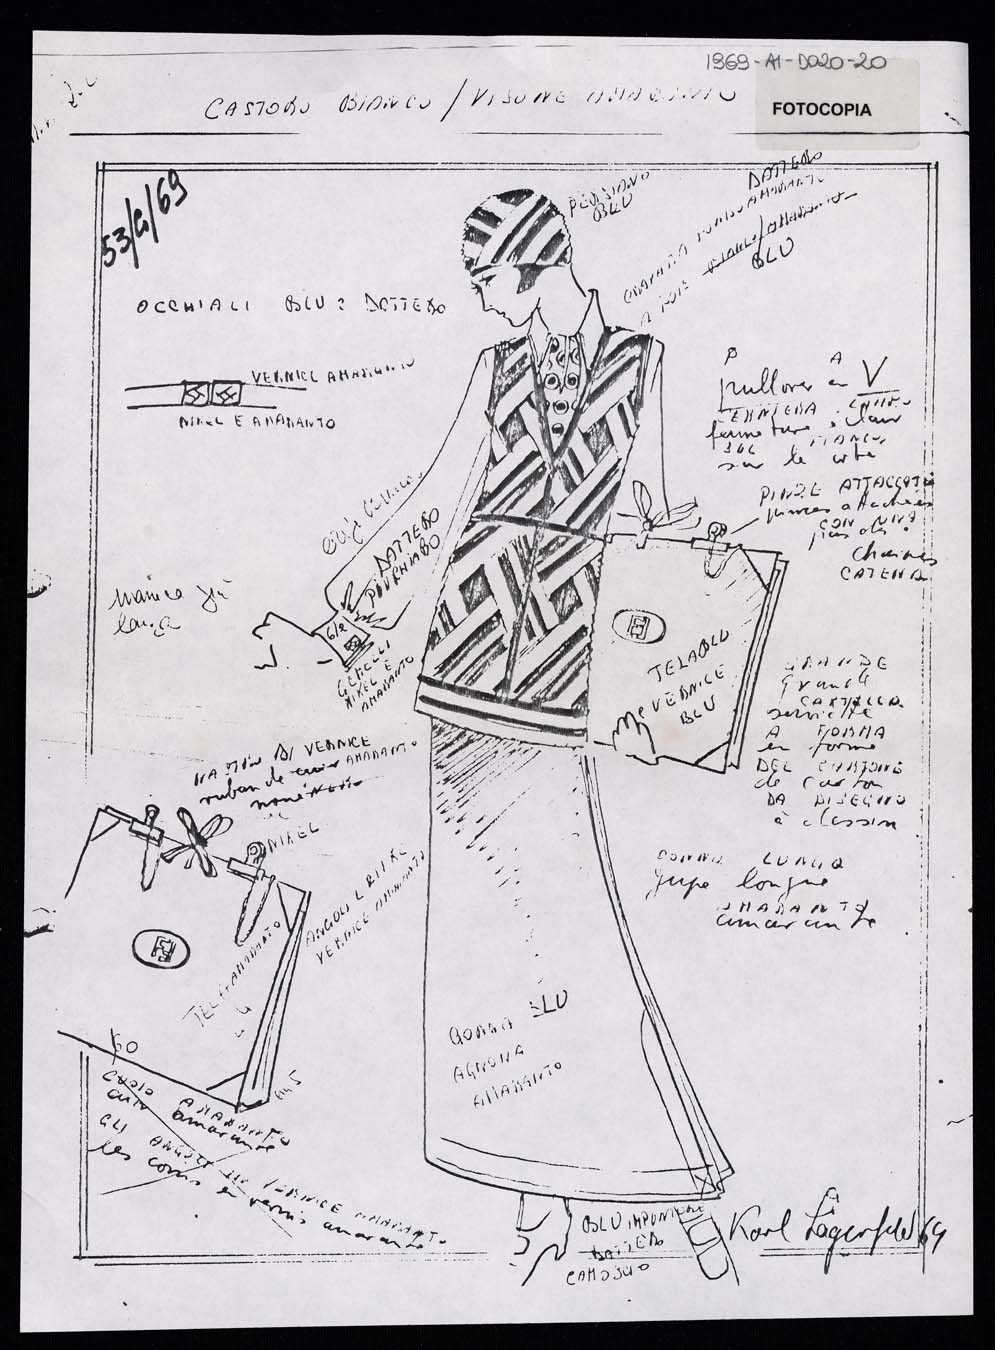 1969-A1-D020-20
FOTOCOPIA
CASTORO BIANCO / VISONE AMARANTO
53/G/69
PERSIANO
BLU
DATTERO
AMARANTO
BLU
OCCHIALI BLU E DATTERO
VERNICE AMARANTO
NIKEL E AMARANTO
pullover en V
CERNIERA
fermeture éclair
SUL FIANCO
sur le côté
PINZE ATTACCATE
pinces attachées
CON UNA
par des
chaines
CATENA
DATTERO
manica più
larga
6/2
GEMELLI
NIKEL E
AMARANTO
TELA BLU
E VERNICE
BLU
GRANDE
Grande
CARTELLA
serviette
A FORMA
en forme
DEL CARTONE
de carton
DA DISEGNO
à dessin
NASTRO DI VERNICE
ruban de cuir AMARANTO
NIKEL
ANGOLI E RIFIN
VERNICE AMARANTO
TELA AMARANTO
60
GONNA LUNGA
jupe longue
AMARANTO
amarante
GONNA BLU
AGNONA
AMARANTO
CUOIO AMARANTO
cuir amarante
GLI ANGOLI IN VERNICE AMARANTO
les coins en vernis amarante
BLU IMPUNTURE
DATTERO
CAMOSCIO
Karl Lagerfeld 69